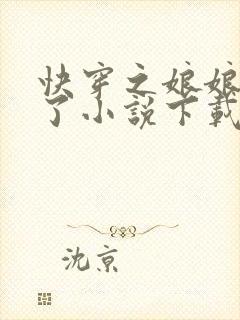 快穿之娘娘
了小说下载
沈京